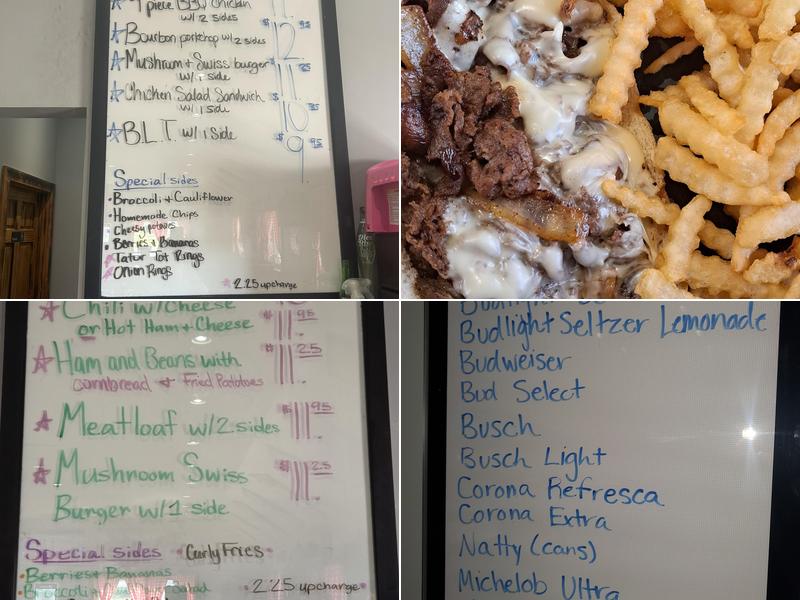 7 piece BBQ Chicken
w/2 sides
☆ Bourbon porkchop w/2 sides 12 95
☆ Mushroom + Swiss burger
w/1 side 11
☆ Chicken Salad Sandwich
w/1 side 10
☆ B.L.T. w/1 side $9 95
Special sides
• Broccoli + Cauliflower
• Homemade Chips
Cheesy potatoes
• Berries + Bananas
Tator Tot Rings
Onion Rings
* 2.25 upchange
☆ Chili w/cheese
or Hot Ham + Cheese 95
☆ Ham and Beans with $11.25
cornbread + Fried Potatoes
☆ Meatloaf w/2 sides $11.95
☆ Mushroom Swiss $11.25
Burger w/1 side
Special sides • Curly Fries •
• Berries + Bananas
• 2.25 upchange •
Budlight Seltzer Lemonade
Budweiser
Bud Select
Busch
Busch Light
Corona Refresca
Corona Extra
Natty (cans)
Michelob Ultra